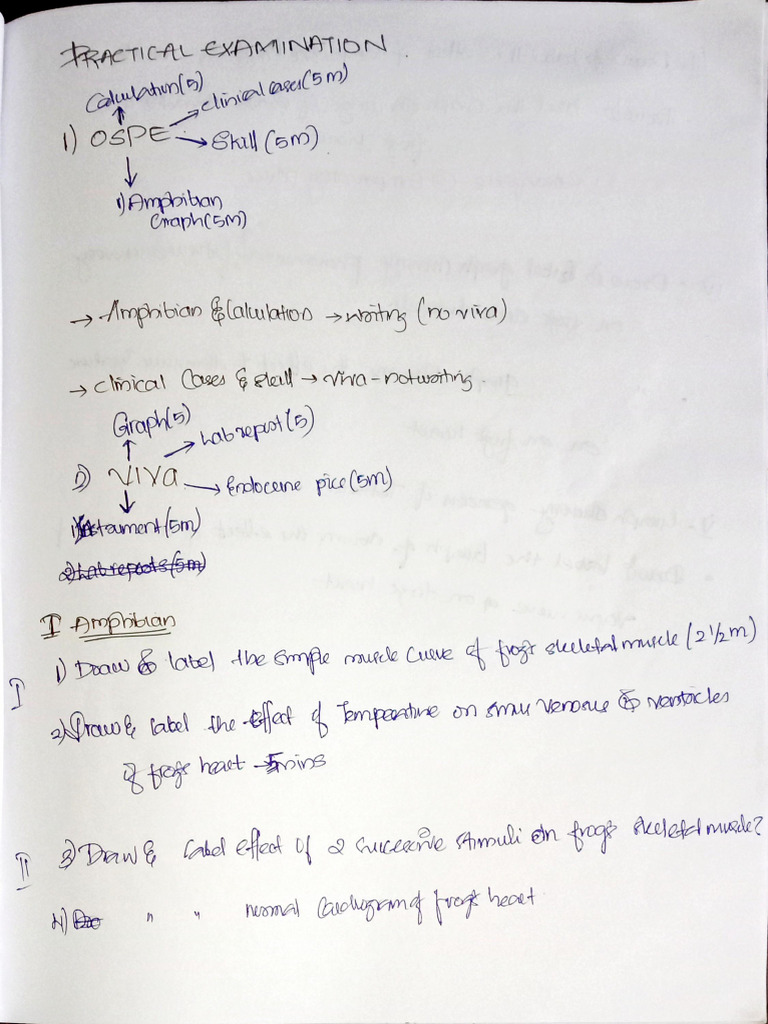 PRACTICAL EXAMINATION.
Calculation(5)
clinical cases(5m)
1) OSPE
Skill (5m)
1) Amphibian
Graph(5m)
→ Amphibian & Calculation → writing (no viva)
→ clinical Cases & skill → viva - not writing.
Graph(5)
Lab report (5)
2) VIVA
Endocrine pice (5m)
1) Instrument (5m)
2) Lab reports (5m)
I Amphibian
I
1) Draw & label the simple muscle curve of frog's skeletal muscle (2 1/2 m)
2) Draw & label the effect of Temperature on sinus venosus & ventricles
of frog's heart → 5mins
II
3) Draw & label effect of 2 successive stimuli on frog's skeletal muscle?
4) " " normal Cardiogram of frog's heart